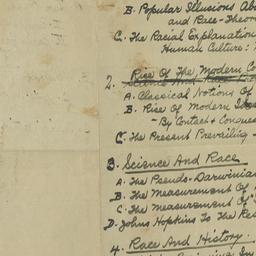 B. Popular Illusions Ab
and Race-Theor
C. The Racial Explanation
Human Culture:
2. Rise Of The Modern Co
A. Classical Notions Of
B. Rise Of Modern
- By Contact & Conques
C. The Present Prevailing -
3. Science And Race
A. The Pseudo-Darwinian
B. The Measurement Of
C. The Measurement Of
D. Johns Hopkins To The Res
4. Race And History.
In